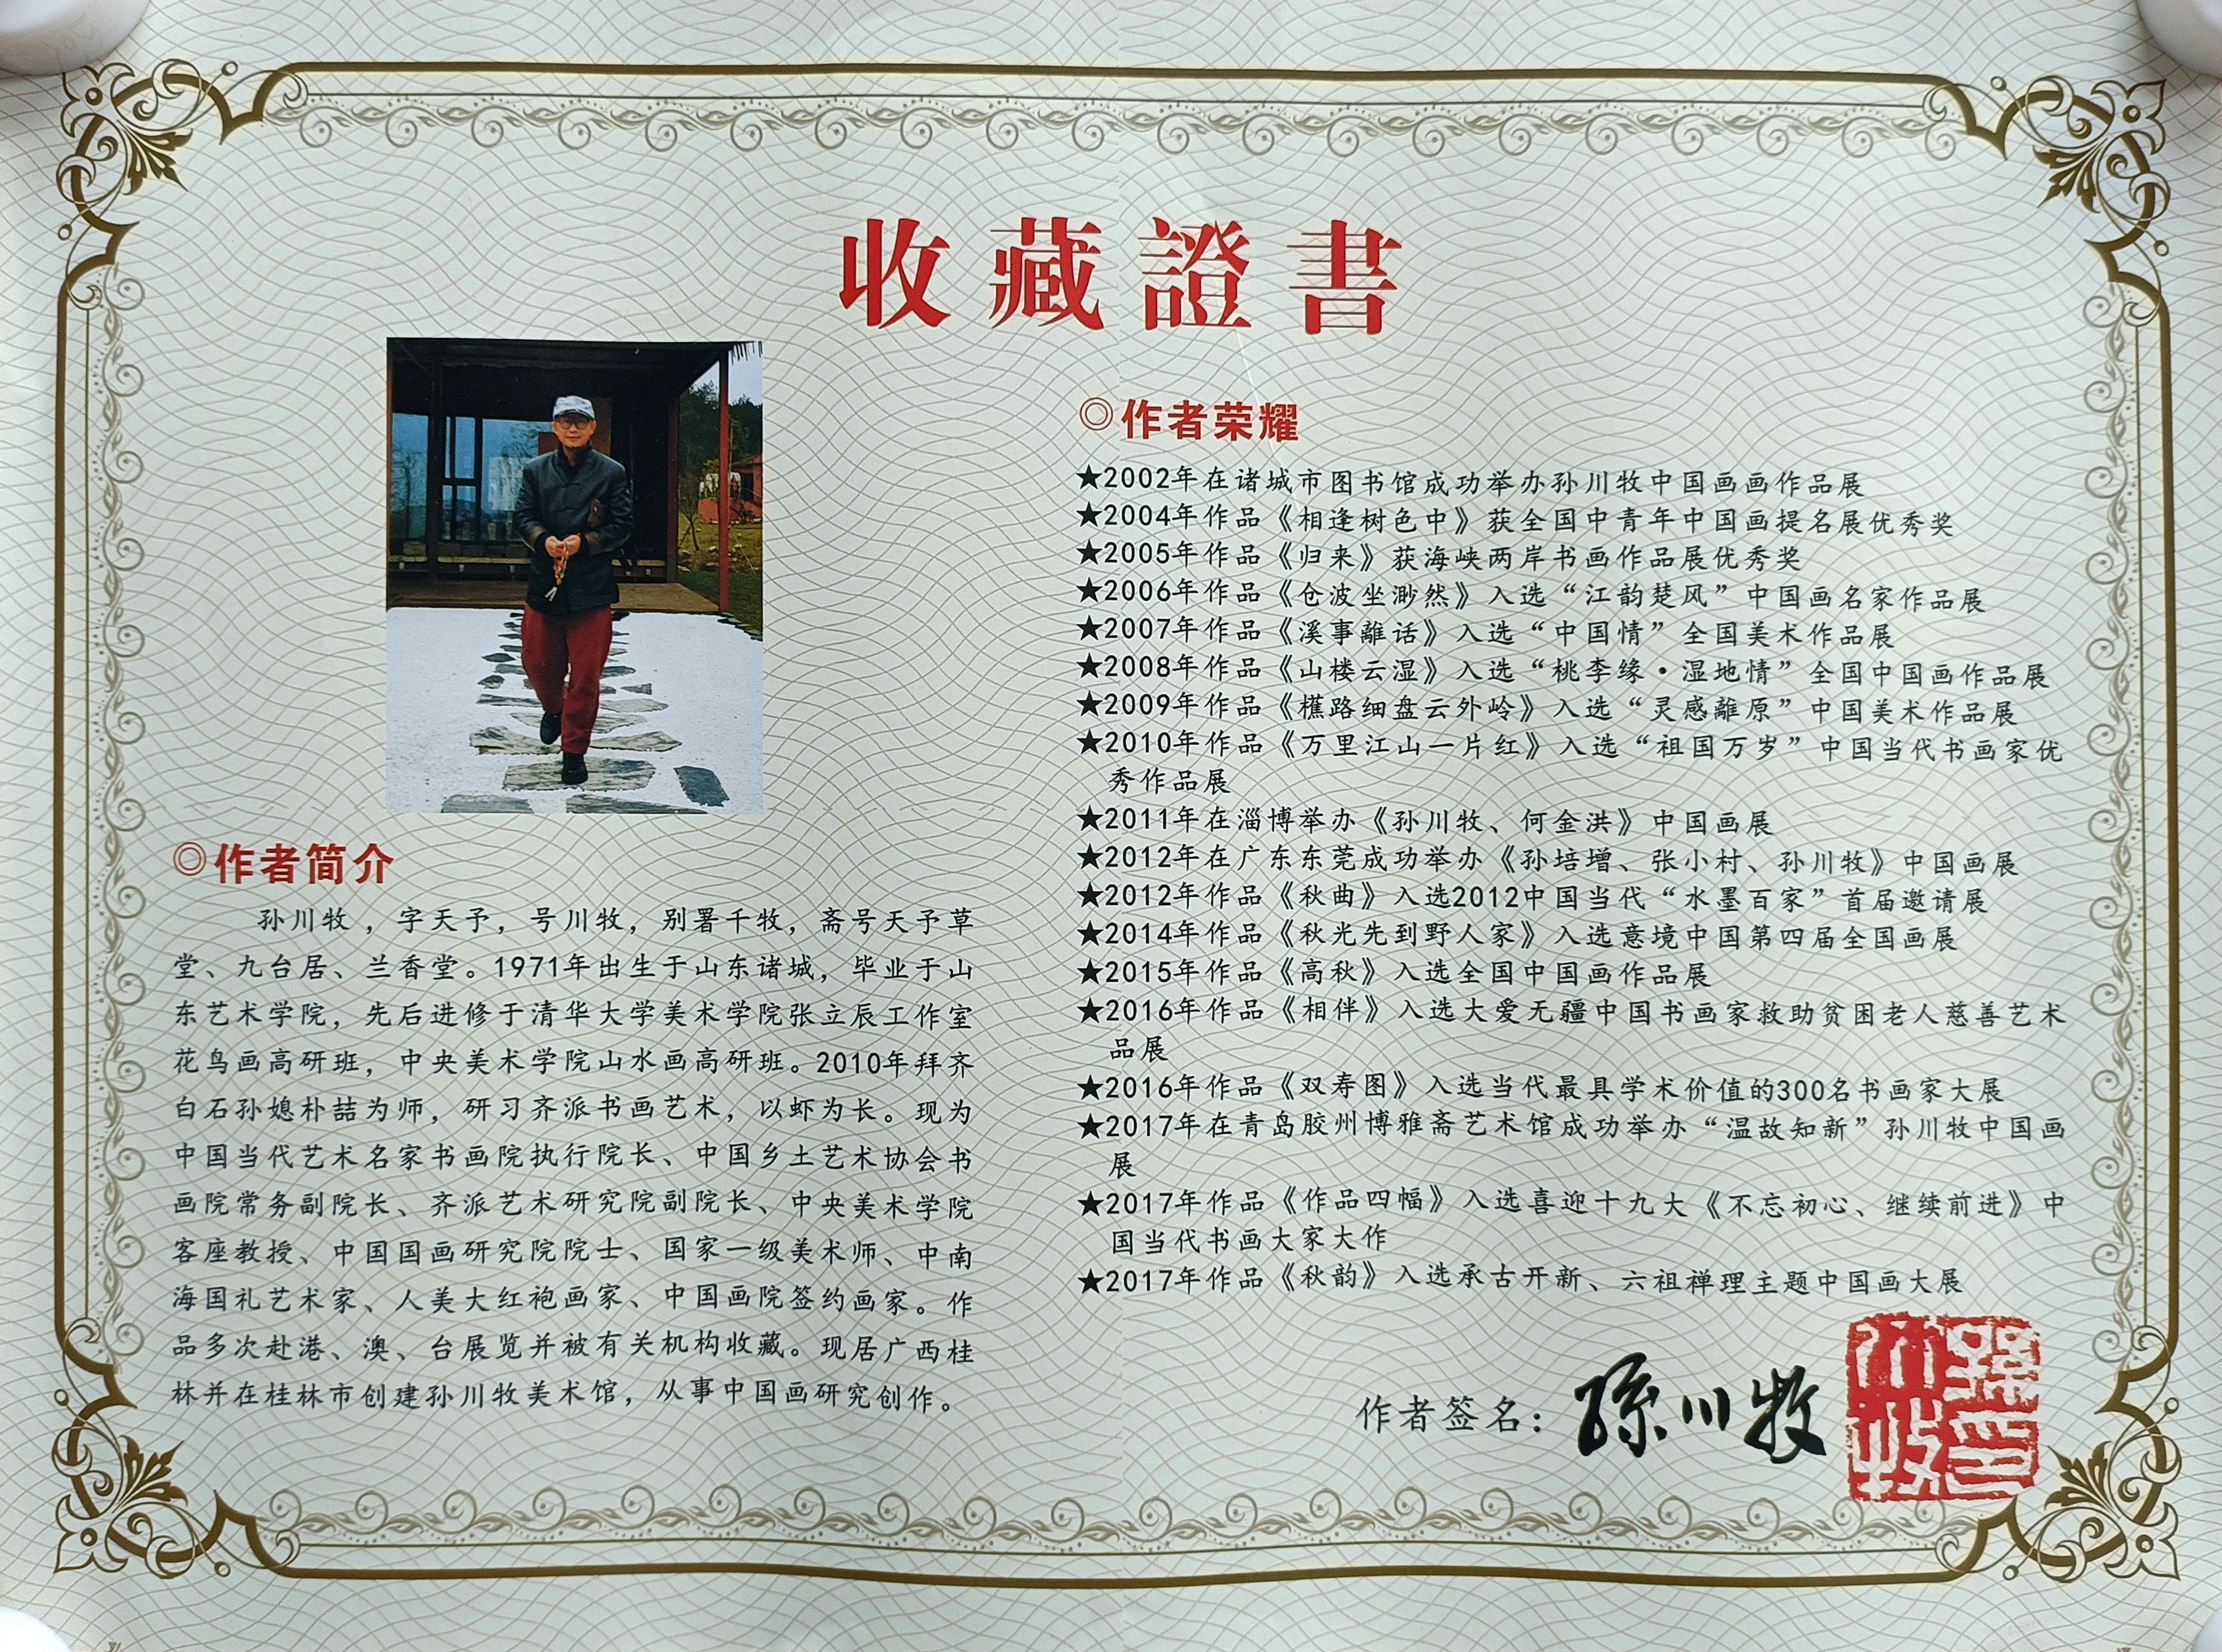 收藏證書
◎作者简介
孙川牧，字天予，号川牧，别署千牧，斋号天予草
堂、九台居、兰香堂。1971年出生于山东诸城，毕业于山
东艺术学院，先后进修于清华大学美术学院张立辰工作室
花鸟画高研班，中央美术学院山水画高研班。2010年拜齐
白石孙媳朴喆为师，研习齐派书画艺术，以虾为长。现为
中国当代艺术名家书画院执行院长、中国乡土艺术协会书
画院常务副院长、齐派艺术研究院副院长、中央美术学院
客座教授、中国国画研究院院士、国家一级美术师、中南
海国礼艺术家、人美大红袍画家、中国画院签约画家。作
品多次赴港、澳、台展览并被有关机构收藏。现居广西桂
林并在桂林市创建孙川牧美术馆，从事中国画研究创作。
◎作者荣耀
★2002年在诸城市图书馆成功举办孙川牧中国画画作品展
★2004年作品《相逢树色中》获全国中青年中国画提名展优秀奖
★2005年作品《归来》获海峡两岸书画作品展优秀奖
★2006年作品《仓波坐渺然》入选“江韵楚风”中国画名家作品展
★2007年作品《溪事離话》入选“中国情”全国美术作品展
★2008年作品《山楼云湿》入选“桃李缘·湿地情”全国中国画作品展
★2009年作品《樵路细盘云外岭》入选“灵感離原”中国美术作品展
★2010年作品《万里江山一片红》入选“祖国万岁”中国当代书画家优
秀作品展
★2011年在淄博举办《孙川牧、何金洪》中国画展
★2012年在广东东莞成功举办《孙培增、张小村、孙川牧》中国画展
★2012年作品《秋曲》入选2012中国当代“水墨百家”首届邀请展
★2014年作品《秋光先到野人家》入选意境中国第四届全国画展
★2015年作品《高秋》入选全国中国画作品展
★2016年作品《相伴》入选大爱无疆中国书画家救助贫困老人慈善艺术
品展
★2016年作品《双寿图》入选当代最具学术价值的300名书画家大展
★2017年在青岛胶州博雅斋艺术馆成功举办“温故知新”孙川牧中国画
展
★2017年作品《作品四幅》入选喜迎十九大《不忘初心、继续前进》中
国当代书画大家大作
★2017年作品《秋韵》入选承古开新、六祖禅理主题中国画大展
作者签名：孫川牧
孫川牧印